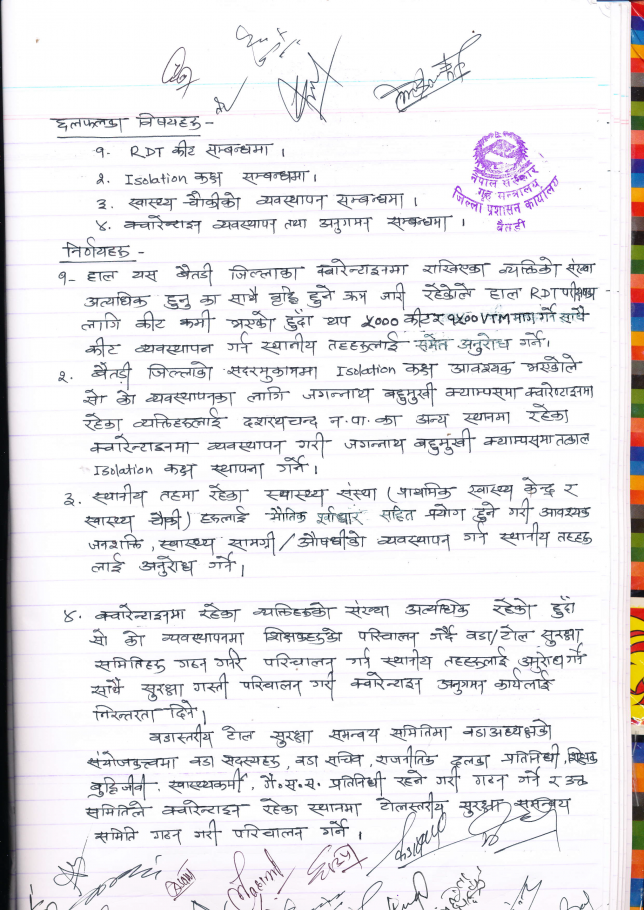 छलफलका विषयहरू -
१. RDT कीट सम्बन्धमा ।
२. Isolation कक्ष सम्बन्धमा ।
३. स्वास्थ्य चौकीको व्यवस्थापन सम्बन्धमा ।
४. क्वारेन्टाइन व्यवस्थापन तथा अनुगमन सम्बन्धमा ।
नेपाल सरकार
गृह मन्त्रालय
जिल्ला प्रशासन कार्यालय
बैतडी
निर्णयहरू -
१- हाल यस बैतडी जिल्लाका क्वारेन्टाइनमा राखिएका व्यक्तिको संख्या
अत्यधिक हुनु का साथै वृद्धि हुने क्रम जारी रहेकोले हाल RDT परीक्षणका
लागि कीट कमी भएको हुँदा थप ५००० कीट र १५०० VTM माग गर्ने साथै
कीट व्यवस्थापन गर्न स्थानीय तहहरूलाई समेत अनुरोध गर्ने।
२. बैतडी जिल्लाको सदरमुकाममा Isolation कक्ष आवश्यक भएकोले
सो को व्यवस्थापनका लागि जगन्नाथ बहुमुखी क्याम्पसमा क्वारेन्टाइनमा
रहेका व्यक्तिहरूलाई दशरथचन्द न.पा. का अन्य स्थानमा रहेका
क्वारेन्टाइनमा व्यवस्थापन गरी जगन्नाथ बहुमुखी क्याम्पसमा तत्काल
Isolation कक्ष स्थापना गर्ने ।
३. स्थानीय तहमा रहेका स्वास्थ्य संस्था (प्राथमिक स्वास्थ्य केन्द्र र
स्वास्थ्य चौकी) हरूलाई भौतिक पूर्वाधार सहित प्रयोग हुने गरी आवश्यक
जनशक्ति, स्वास्थ्य सामग्री / औषधीको व्यवस्थापन गर्न स्थानीय तहहरू
लाई अनुरोध गर्ने ।
४. क्वारेन्टाइनमा रहेका व्यक्तिहरूको संख्या अत्यधिक रहेको हुँदा
सो को व्यवस्थापनमा शिक्षकहरूको परिचालन गर्दै वडा/टोल सुरक्षा
समितिहरू गठन गरी परिचालन गर्न स्थानीय तहहरूलाई अनुरोध गर्ने
साथै सुरक्षा गस्ती परिचालन गरी क्वारेन्टाइन अनुगमन कार्यलाई
निरन्तरता दिने ।
वडास्तरीय टोल सुरक्षा समन्वय समितिमा वडाअध्यक्षको
संयोजकत्वमा वडा सदस्यहरू, वडा सचिव, राजनीतिक दलका प्रतिनिधी, शिक्षक
बुद्धिजीवी, स्वास्थ्यकर्मी, गै.स.स. प्रतिनिधी रहने गरी गठन गर्ने र उक्त
समितिले क्वारेन्टाइन रहेका स्थानमा टोलस्तरीय सुरक्षा समन्वय
समिति गठन गरी परिचालन गर्ने ।